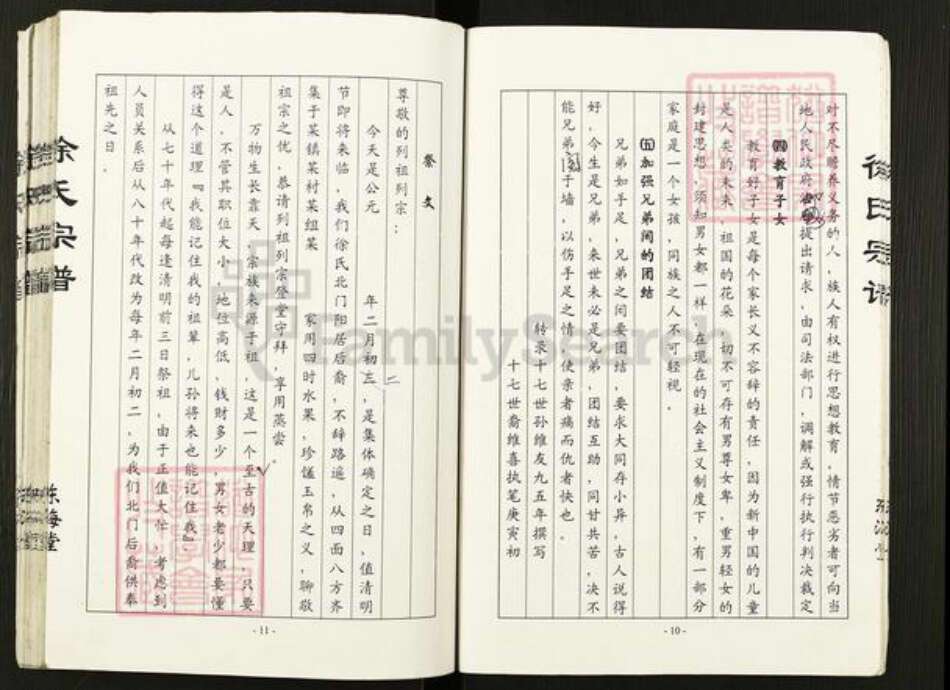 徐氏宗谱
东海堂
对不尽赡养义务的人，族人有权进行思想教育，情节恶劣者可向当
地人民政府提出请求，由司法部门，调解或强行执行判决裁定
㈣教育子女
教育好子女是每个家长义不容辞的责任，因为新中国的儿童
是人类的未来，祖国的花朵，一切不可存有男尊女卑，重男轻女的
封建思想，须知男女都一样，在现在的社会主义制度下，有一部分
家庭是一个女孩，同族之人不可轻视。
㈤加强兄弟间的团结
兄弟如手足，兄弟之间要团结，要求大同存小异，古人说得
好，今生是兄弟，来世未必是兄弟，团结互助，同甘共苦，决不
能兄弟阋于墙，以伤手足之情，使亲者痛而仇者快也。
转录十七世孙维友九五年撰写
十七世裔维喜执笔庚寅初
-10-
祭文
尊敬的列祖列宗：
今天是公元　　年二月初二，是集体确定之日，值清明
节即将来临，我们徐氏北门阳居后裔，不辞路遥，从四面八方齐
集于某镇某村某组某　　家用四时水果，珍馐玉帛之义，聊敬
祖宗之忱，恭请列祖列宗登堂守拜，享用蒸尝。
万物生长靠天，宗族来源于祖，这是一个至古的天理，只要
是人，不管其职位大小，地位高低，钱财多少，男女老少都要懂
得这个道理『我能记住我的祖辈，儿孙将来也能记住我』
从七十年代起每逢清明前三日祭祖，由于正值大忙，考虑到
人员关系后从八十年代改为每年二月初二，为我们北门后裔供奉
祖先之日。
-11-
徐氏宗谱
东海堂
FamilySearch